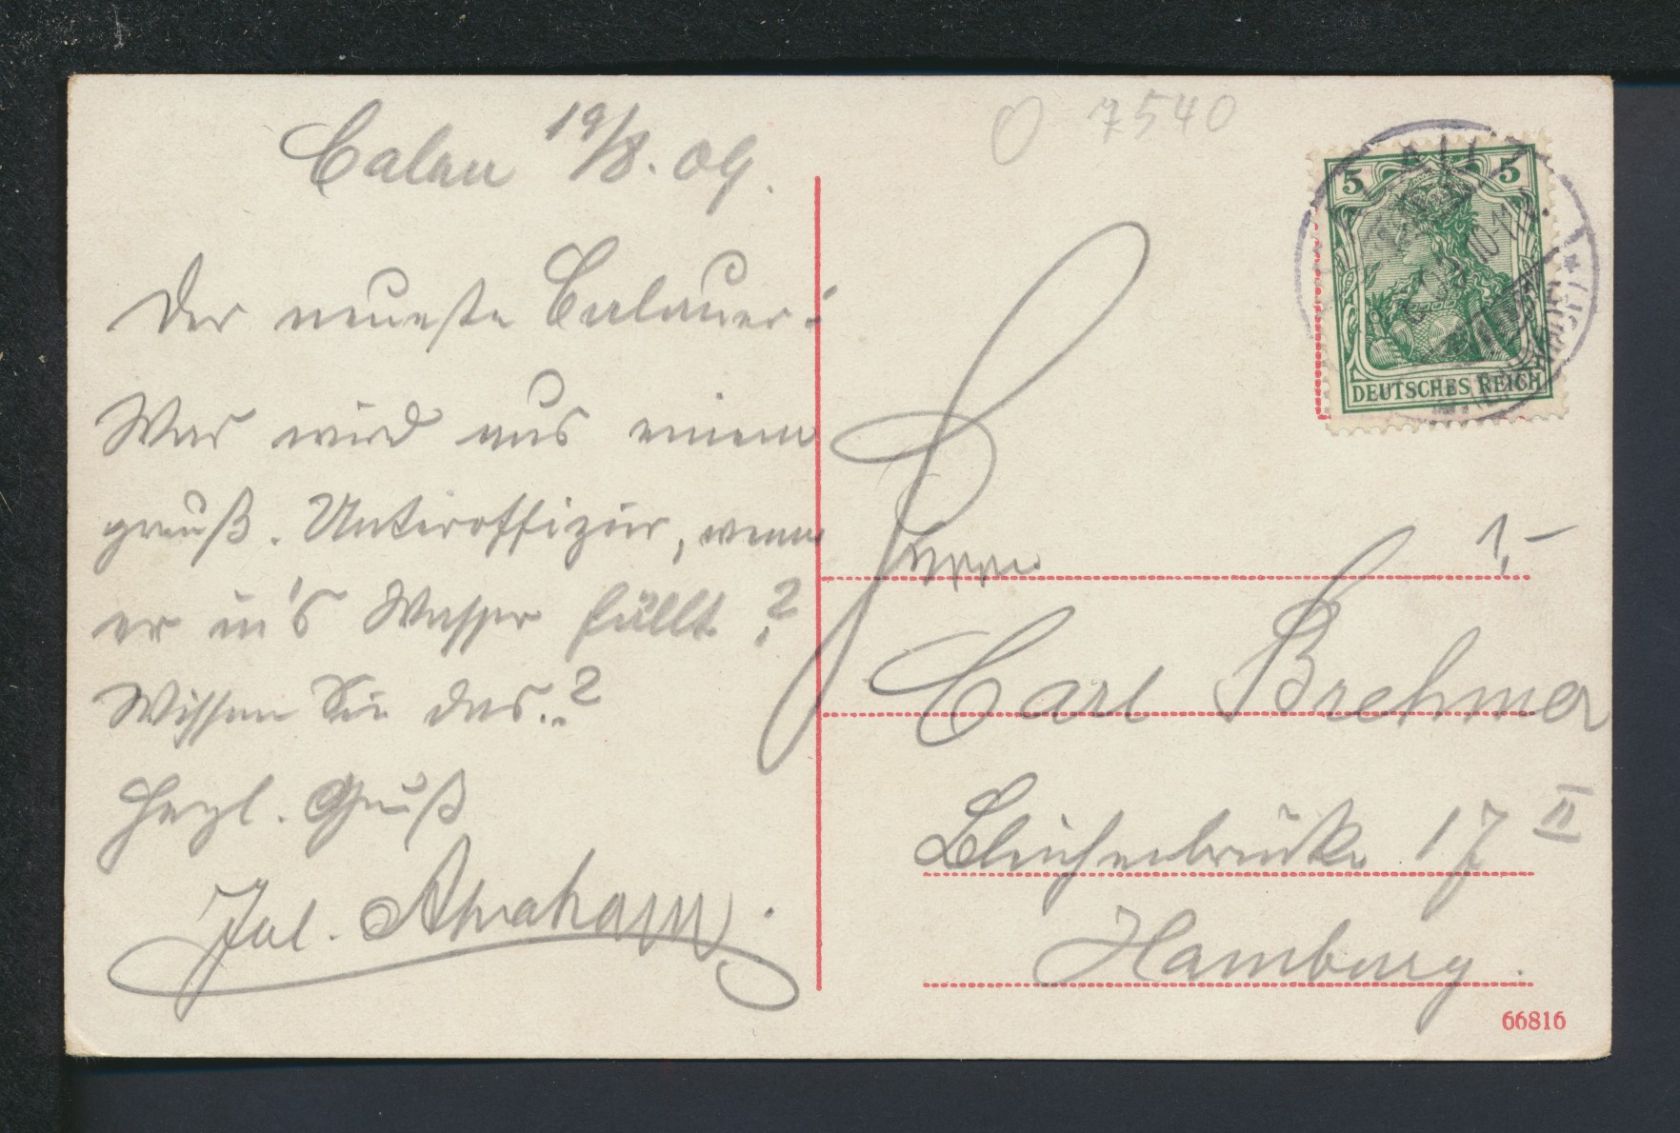 O 7540
Calau 19/8. 09.
Der neueste Calauer:
Was wird aus einem
preuß. Unteroffizier, wenn
er in's Wasser fällt?
Wissen Sie das..?
Herzl. Gruß
Jul. Abraham.
5 5
DEUTSCHES REICH
10-11
Herrn
1,-
Carl Brehmer
Bleichenbrücke 17 II
Hamburg.
66816